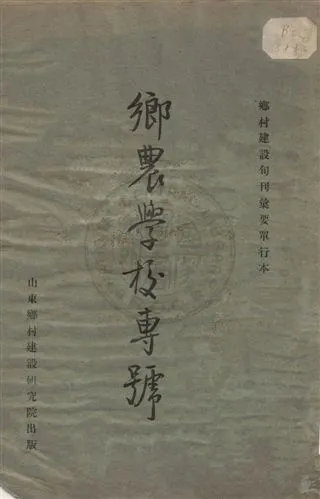 鄉村建設旬刊彙要單行本
鄉農學校專號
山東鄉村建設研究院出版